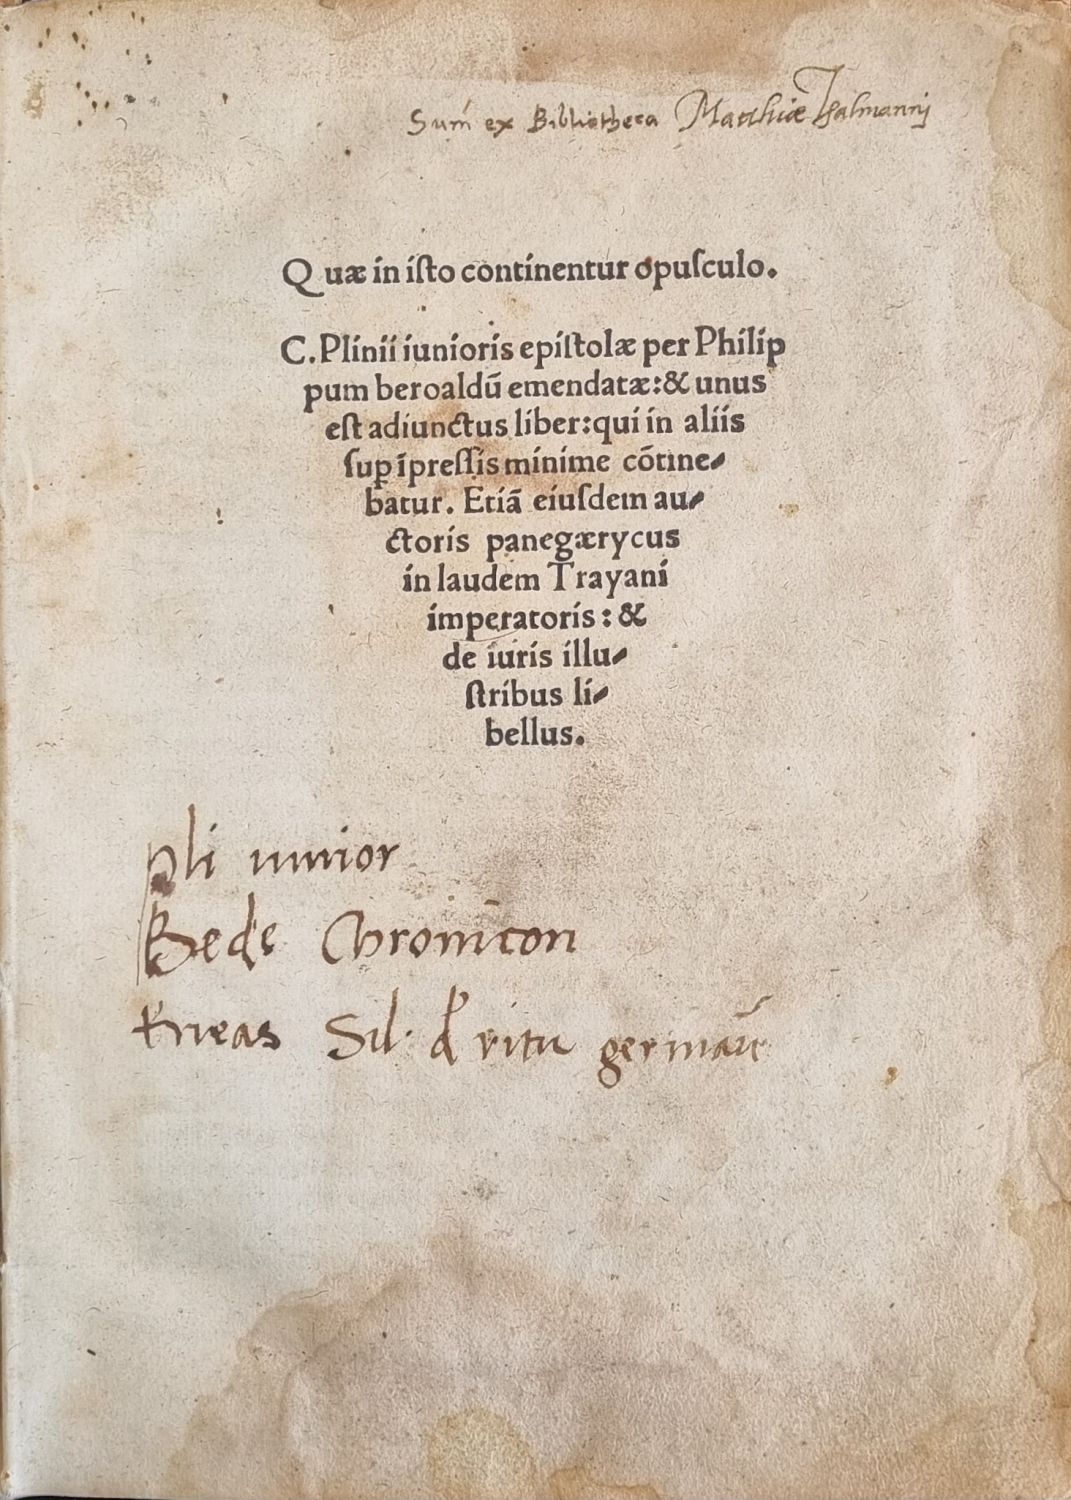 Sum ex Bibliotheca Matthiæ Thalmannj
Quæ in iſto continentur opuſculo.
C. Plinii iunioris epiſtolæ per Philip
pum beroaldū emendatæ: & unus
eſt adiunctus liber: qui in aliis
ſuꝑ īpreſſis minime cōtine-
batur. Etiā eiuſdem au-
ctoris panegærycus
in laudem Trayani
imperatoris: &
de iuris illu-
ſtribus li-
bellus.
pli iunior
Bede Chronicon
Eneas Sil. d ritu